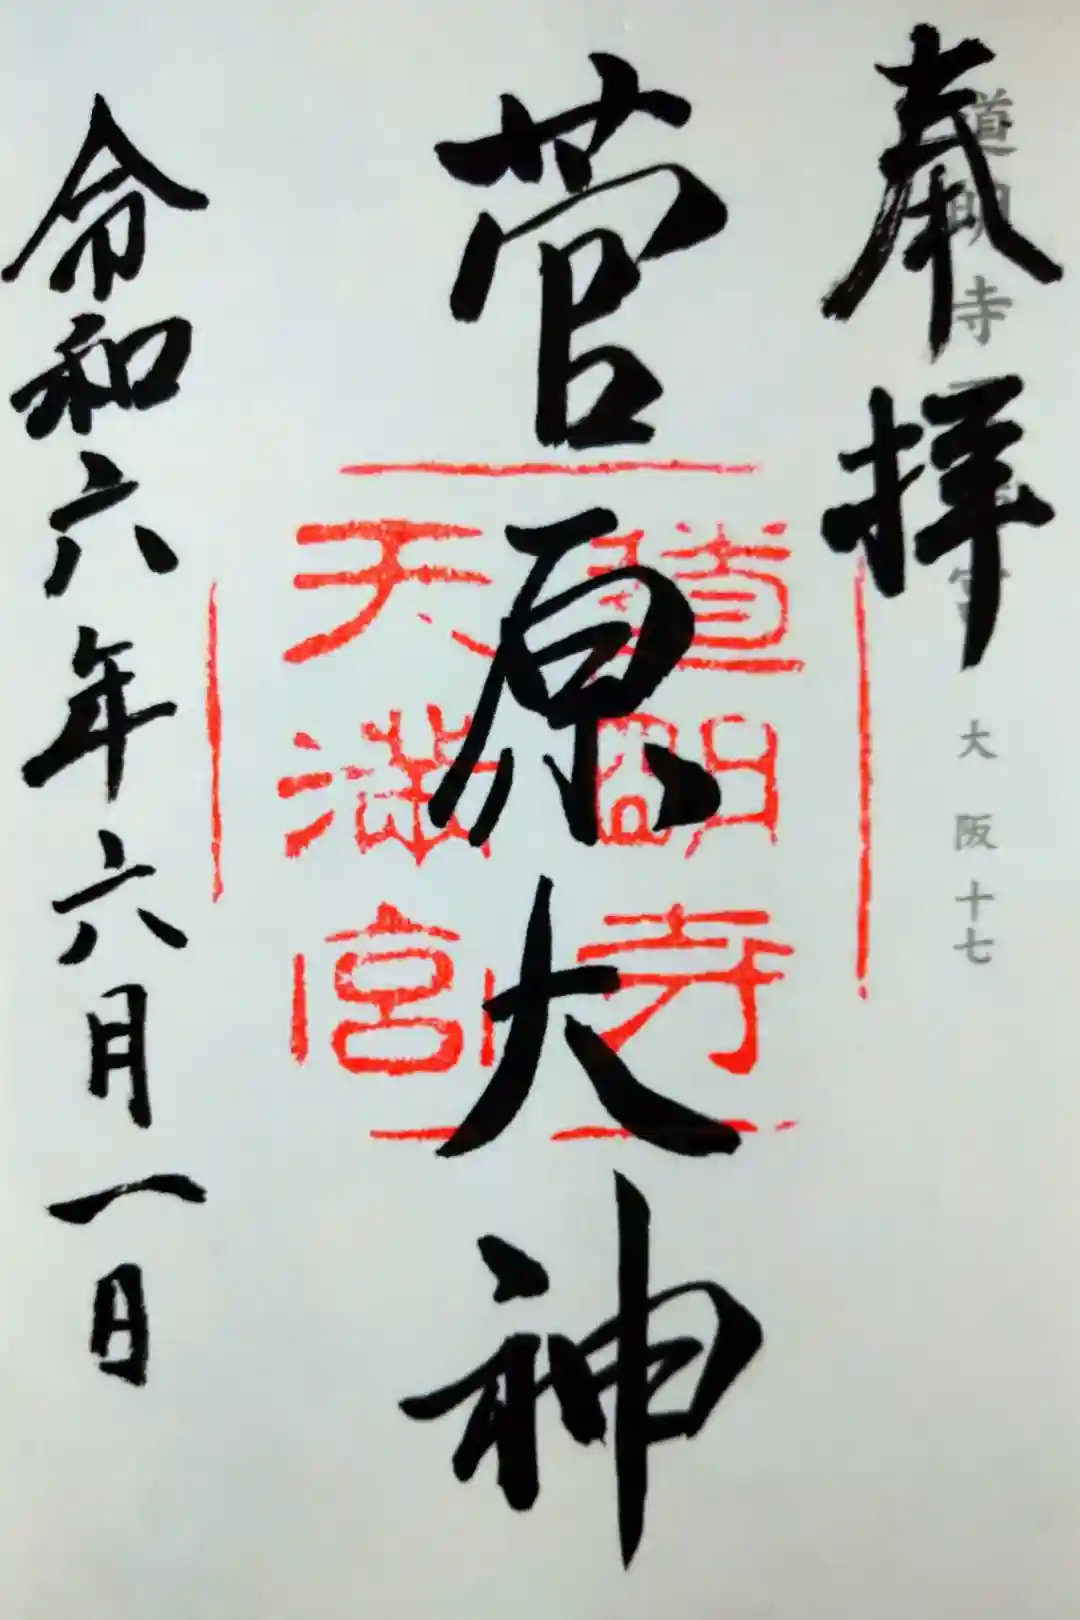 奉拝
道明寺天満宮 大阪十七
菅原大神
道明寺
天満宮
令和六年六月一日